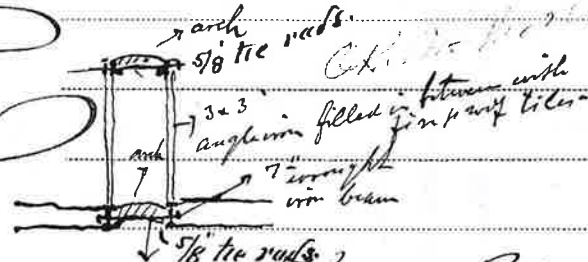 arch
5/8" tie rods.
3 x 3
angle iron filled in between with
fire proof tiles
arch
7" wrought
iron beam
5/8" tie rods.